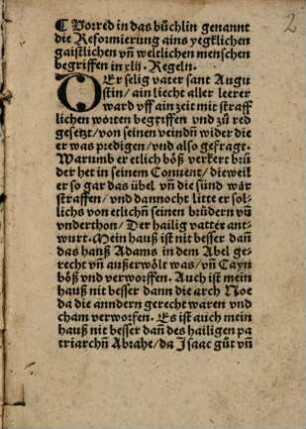 2
❡ Vorred in das büchlin genannt
die Reformierung ains yegklichen
gaistlichen vn̄ weltlichen menschen
begriffen in xlii. Regeln.
DEr selig vater sant Augu
stin/ ain liecht aller leerer
ward vff ain zeit mit straff
lichen worten begriffen vnd zů red
gesetzt/ von seinen veindn̄ wider die
er was predigen/ vnd also gefragt.
Warumb er etlich böß verkert brů
der het in seinem Conuent/ dieweil
er so gar das übel vn̄ die sünd wår
straffen/ vnd dannocht litte er sol⸗
lichs von etlichn̄ seinen brůdern vn̄
vnderthon/ Der hailig vatter ant⸗
wurt. Mein hauß ist nit besser dan̄
das hauß Adams in dem Abel ge⸗
recht vn̄ außerwölt was/ vn̄ Cayn
böß vnd verworffen. Auch ist mein
hauß nit besser dann die arch Noe
da die anndern gerecht waren vnd
cham verworfen. Es ist auch mein
hauß nit besser dan̄ des hailigen pa
triarchn̄ Abrahe/ da Isaac gůt vn̄